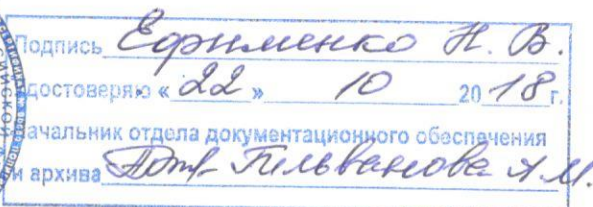 Подпись Ефименко Н. В.
достоверяю «22» 10 2018 г.
ачальник отдела документационного обеспечения
и архива А.М.